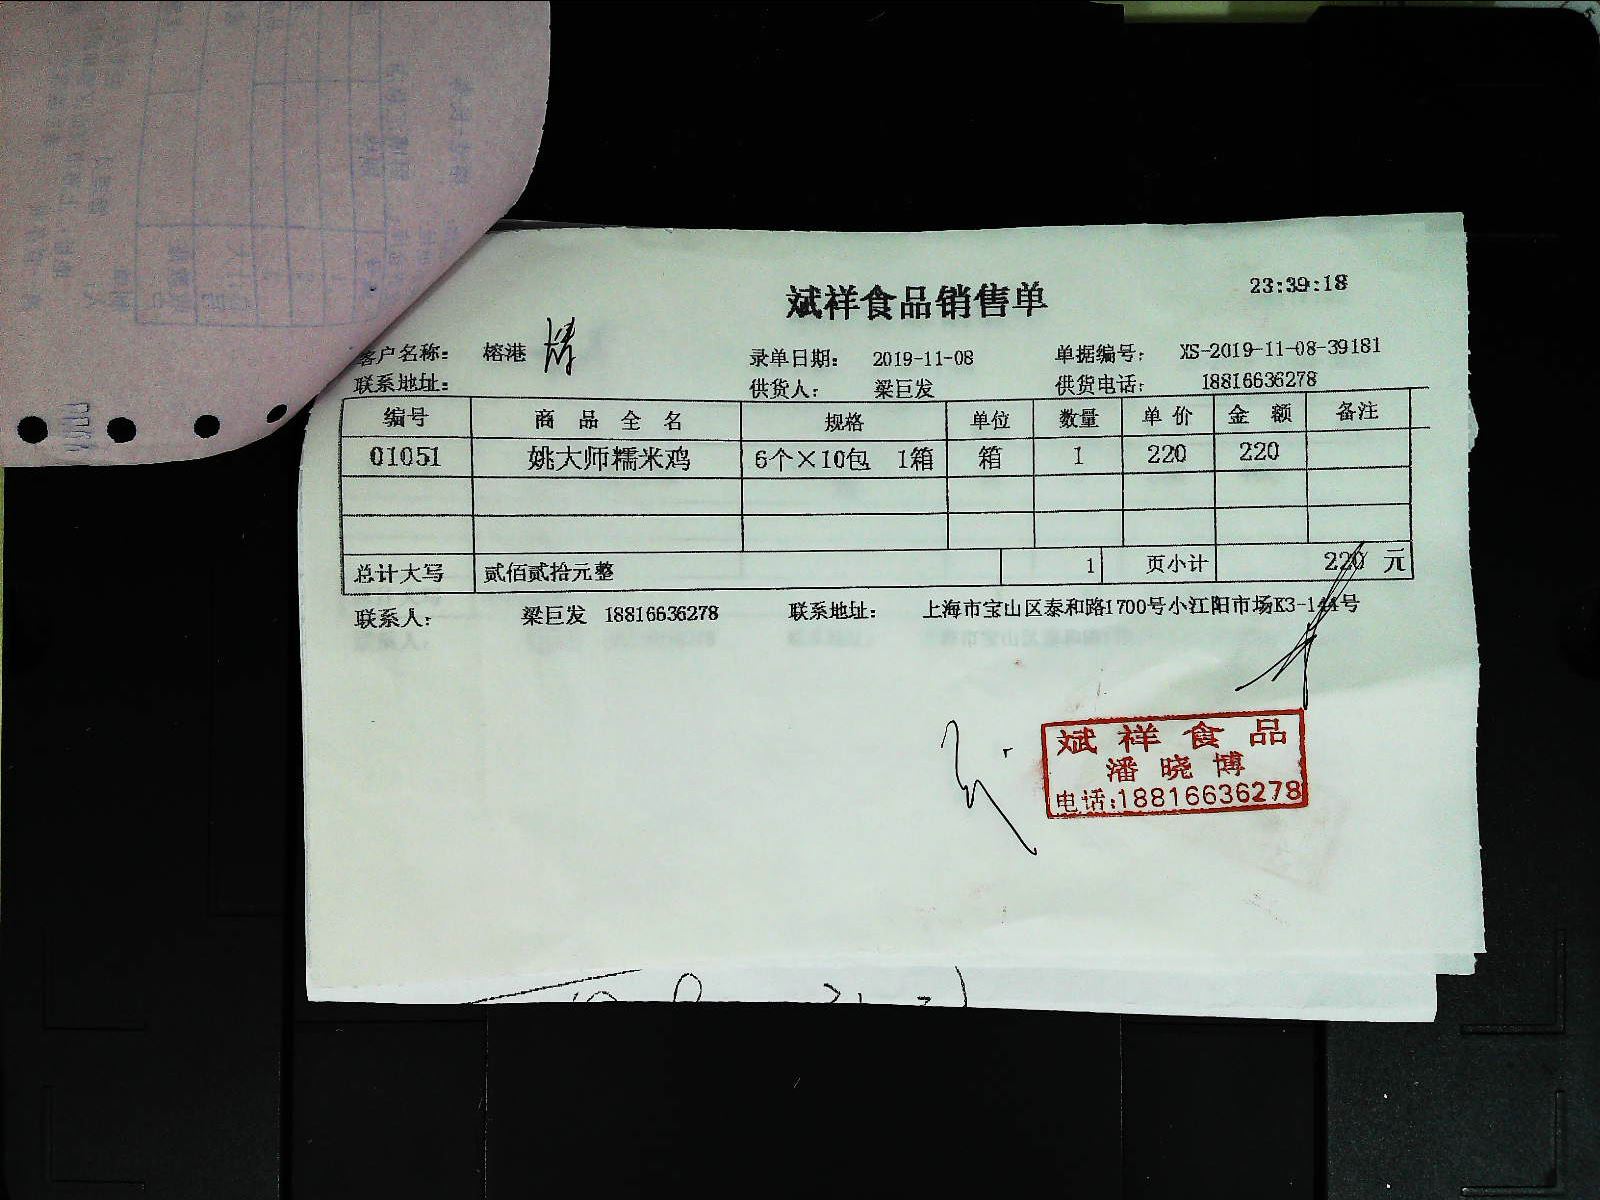 斌祥食品销售单
23:39:18
客户名称: 榕港 录单日期: 2019-11-08 单据编号: XS-2019-11-08-39181
联系地址: 供货人: 梁巨发 供货电话: 18816636278
编号 商品全名 规格 单位 数量 单价 金额 备注
01051 姚大师糯米鸡 6个×10包 1箱 箱 1 220 220
总计大写 贰佰贰拾元整 1 页小计 220 元
联系人: 梁巨发 18816636278 联系地址: 上海市宝山区泰和路1700号小江阳市场K3-144号
斌祥食品
潘晓博
电话:18816636278